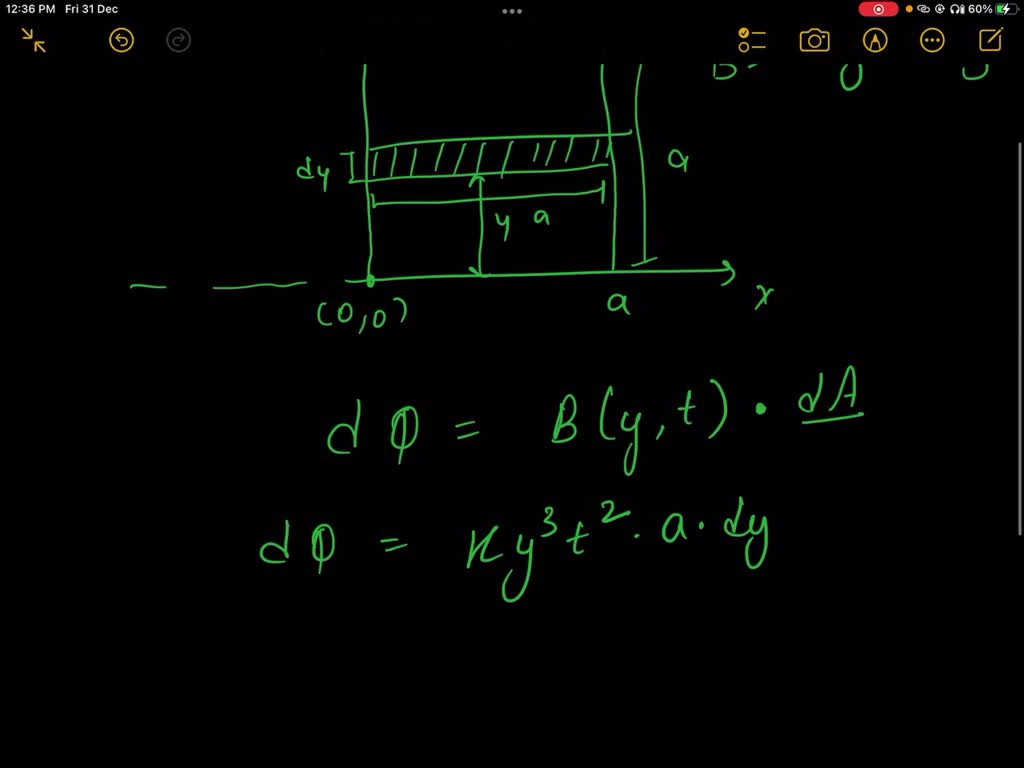 12:36 PM Fri 31 Dec 60%
dy
a
y a
(0,0)
a
x
dΦ = B(y,t) · dA
dΦ = Ky³t² · a · dy